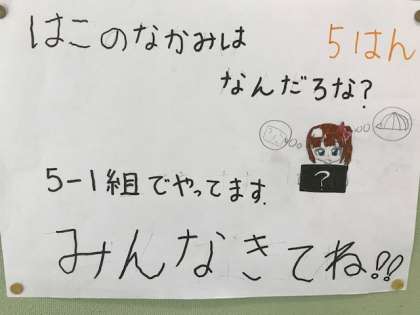 はこのなかみは
5はん
なんだろな?
?
5-1組でやってます.
みんなきてね!!